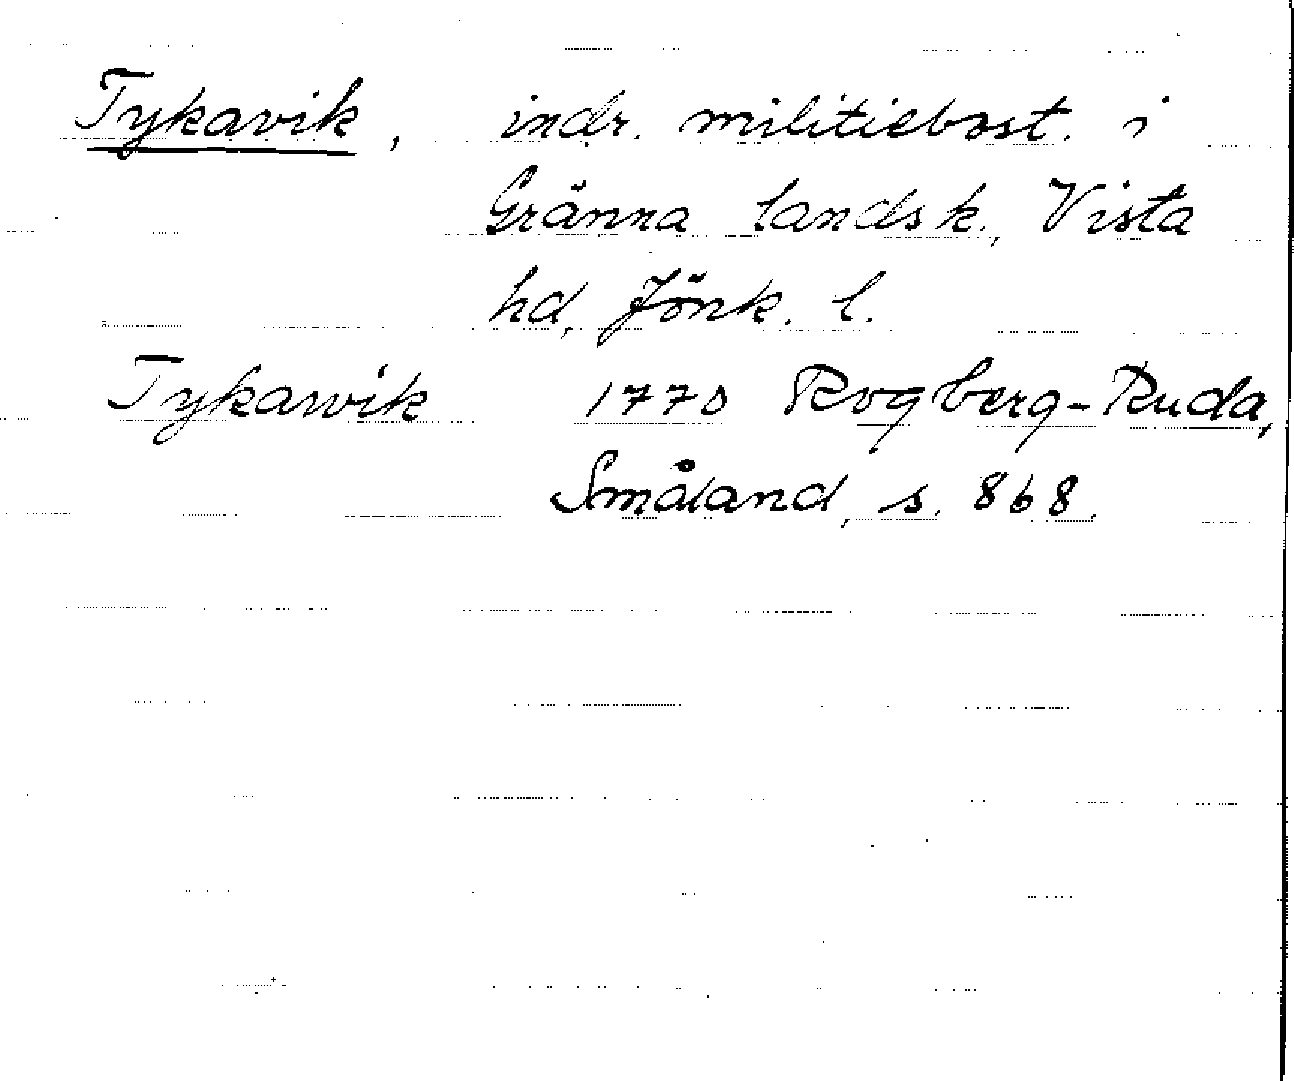 Tykavik, indr. militiebost. i
Gränna landsk., Vista
hd, Jönk. l.
Tykawik 1770 Rogberg-Ruda,
Småland, s. 868.